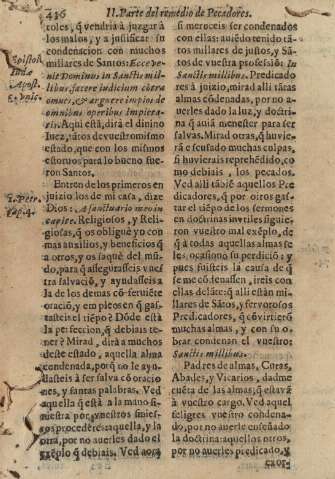 436 II. Parte del remedio de Pecadores.
toles, q̃ vendrà a juzgar à
los malos, y a justificar su
condenacion con muchos
millares de Santos: Ecce ve-
nit Dominus in Sanctis mil-
libus, facere iudicium contra
omnes, & arguere impios de
omnibus operibus Impieta-
tis. Aqui está, dirà el divino
Iuez, tãtos de vuestro mismo
estado, que con los mismos
estorvos para lo bueno fue-
ron Santos.
Entren de los primeros en
juizio los de mi casa, dize
Dios: A sanctuario meo in-
cipite. Religiosos, y Reli-
giosas, q̃ os obliguè yo con
mas auxilios, y beneficios q̃
a otros, y os saquè del mũ-
do, para q̃ assegurasseis vues
tra salvaciõ, y ayudasseis a
la de los demas cõ fervietè
oraciõ, y em pleos en q̃ gas-
tasteis el tiẽpo? Dõde està
la perfeccion, q̃ debiais te-
ner? Mirad, dirà a muchos
deste estado, aquella alma
condenada, porq̃ no le ayu-
dasteis à ser salva cõ oracio
nes, y santas palabras. Ved
aquella q̃ està a la mano si-
niestra por vuestros sinies-
tros procederes: aquella, y la
otra, por no averles dado el
exẽplo q̃ debiais. Ved aora
Epistol.
Iudæ
Apost.
2. Petr.
cap. 4.
si mereceis ser condenados
con ellas: auiẽdo tenido tã-
tos millares de justos, y Sã-
tos de vuestra professiõ: In
Sanctis millibus. Predicado
res à joizio, mirad alli tãtas
almas cõdenadas, por no a-
verles dado la luz, y doctrina
q̃ auia menester para ser
salvas. Mirad otras, q̃ huvie-
rã escusado muchas culpas,
si huvierais reprehẽdido, co
mo debiais, los pecados.
Ved alli tãbiẽ aquellos Pre
dicadores, q̃ por otros gas-
tar el tiẽpo de los sermones
en doctrinas invtiles siguie-
ron vuestro mal exẽplo, de
q̃ à todas aquellas almas se
les ocasionò su perdiciõ; y
pues fuisteis la causa de q̃
se me cõdenassen, ireis con
ellas delãte: q̃ alli estàn mi-
llares de Sãtos, y fervorosos
Predicadores, q̃ cõvirtierõ
muchas almas, y con su o-
brar condenan el vuestro:
Sanctis millibus.
Padres de almas, Curas,
Abades, y Vicarios, dadme
cuẽta de las almas, q̃ estavã
à vuestro cargo. Ved aquel
feligres vuestro condena-
do, por no averle enseñado
la doctrina: aquellos otros,
por no averles predicado, y
exor-